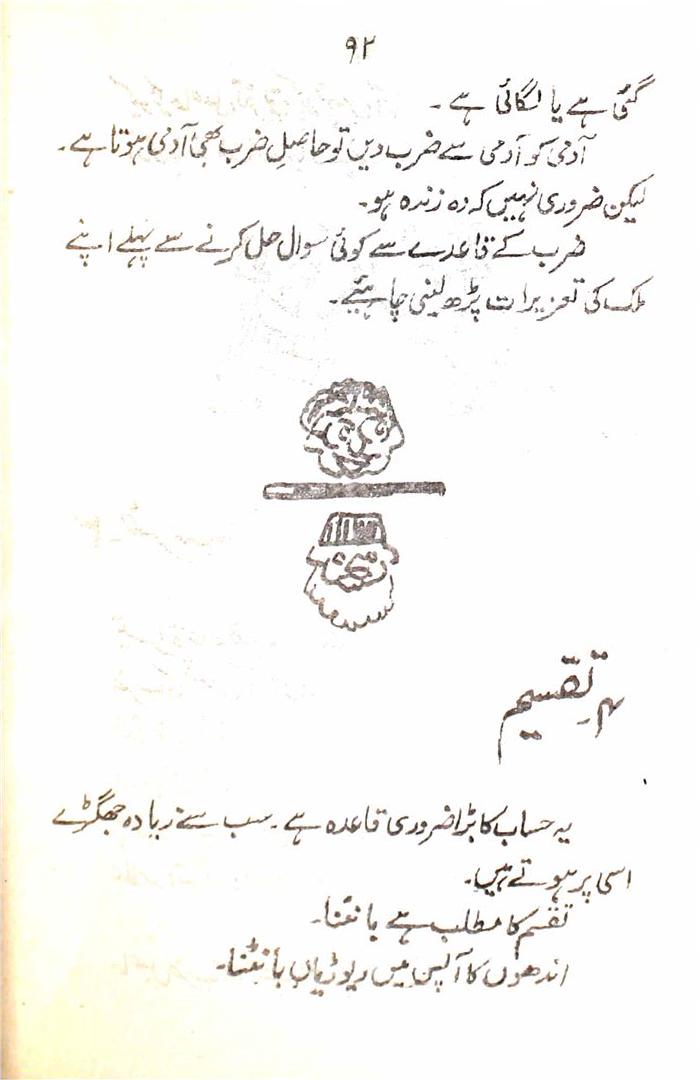 ۹۲
گئی ہے یا لگائی ہے ۔
آدمی کو آدمی سے ضرب دیں تو حاصلِ ضرب بھی آدمی ہوتا ہے۔
لیکن ضروری نہیں کہ وہ زندہ ہو۔
ضرب کے قاعدے سے کوئی سوال حل کرنے سے پہلے اپنے
ملک کی تعزیرات پڑھ لینی چاہیئے۔
۴۔ تقسیم
یہ حساب کا بڑا ضروری قاعدہ ہے ۔ سب سے زیادہ جھگڑے
اسی پر ہوتے ہیں۔
تقسیم کا مطلب ہے بانٹنا۔
اندھوں کا آپس میں ریوڑیاں بانٹنا۔